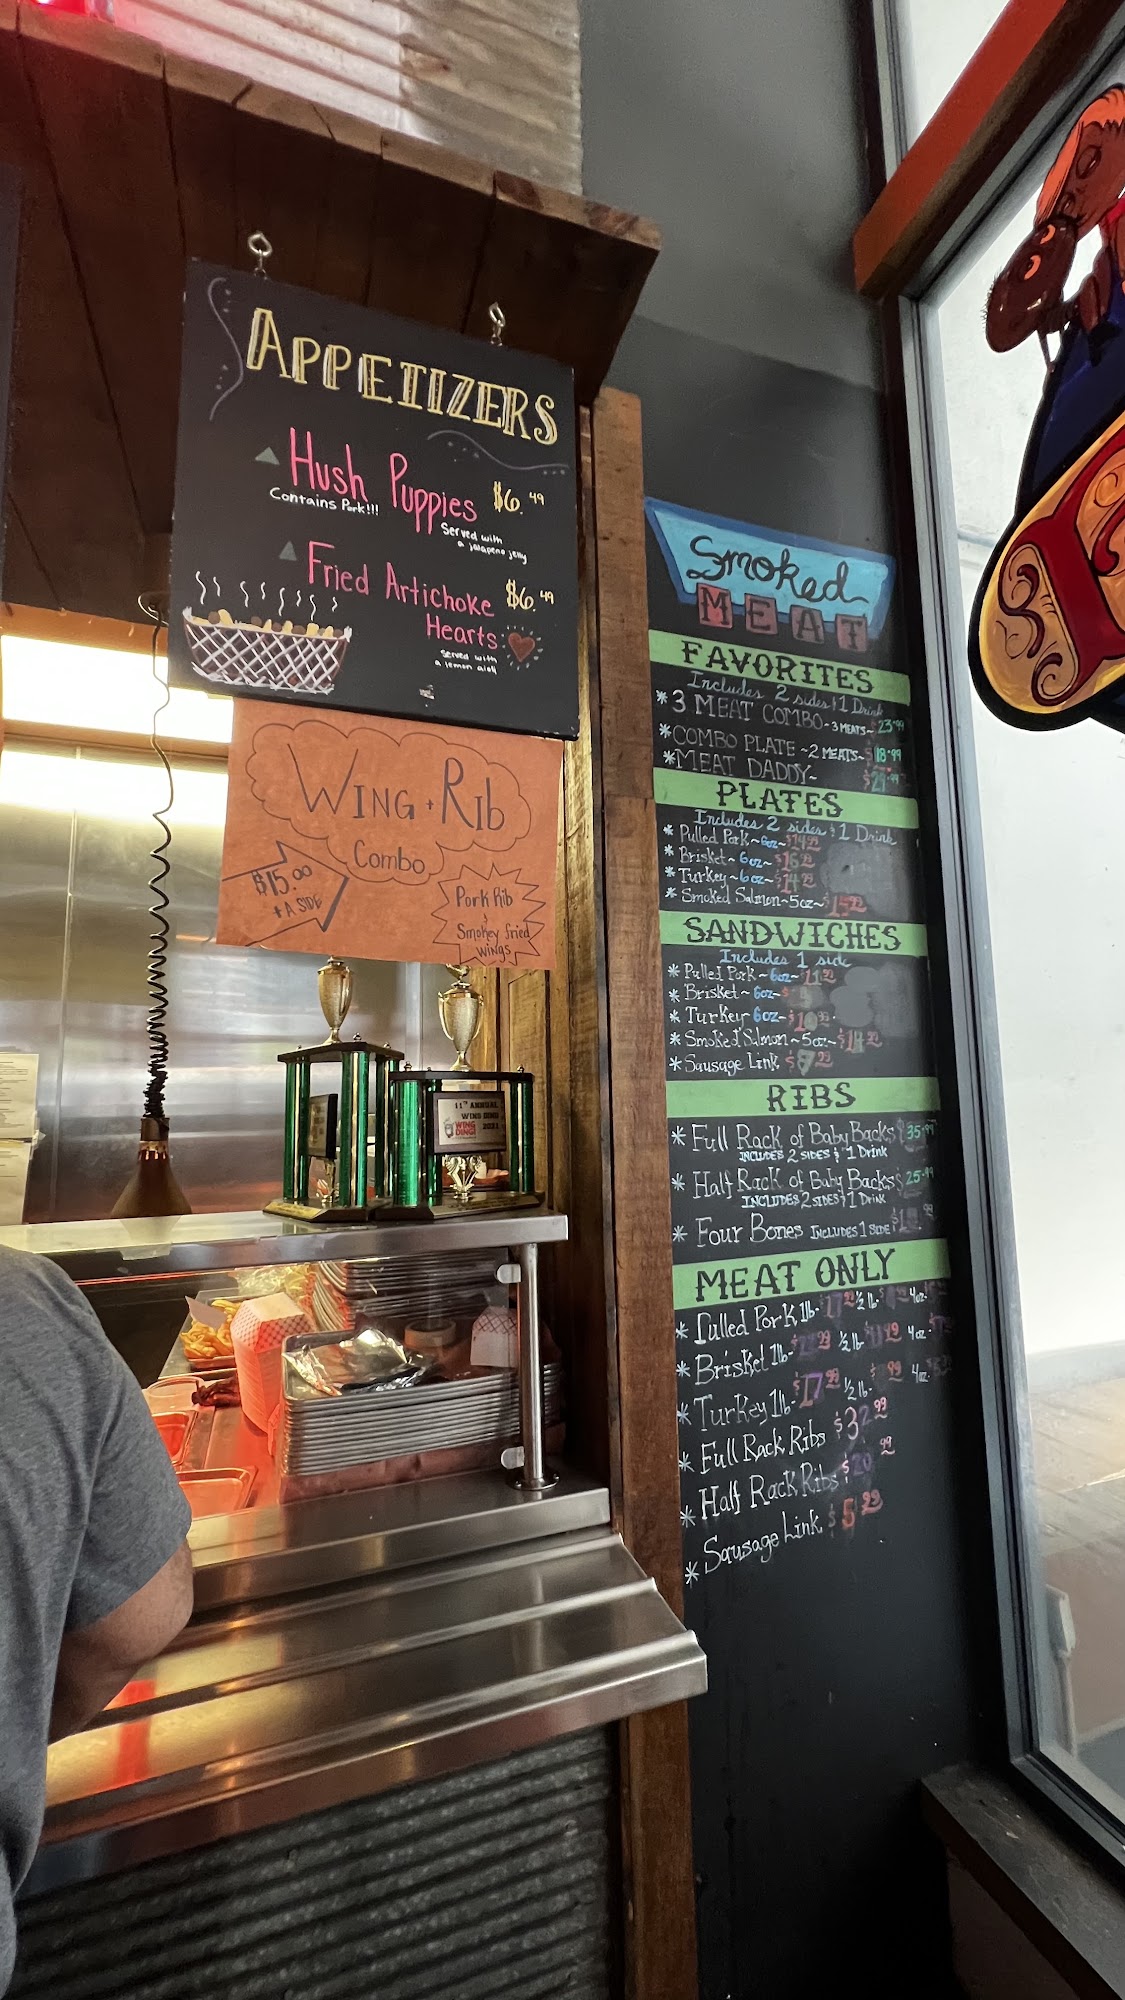 APPETIZERS
Hush Puppies $6.49
Contains Pork!!!
Served with
a jalapeno jelly
Fried Artichoke $6.49
Hearts
Served with
a lemon aioli
WING + Rib
Combo
$15.00
+ A SIDE
Pork Rib
&
Smokey fried
wings
11TH ANNUAL
WING DING
2021
WING
DING!
Smoked
MEAT
FAVORITES
Includes 2 sides & 1 Drink
* 3 MEAT COMBO - 3 MEATS~ $23.99
* COMBO PLATE ~2 MEATS~ $18.99
* MEAT DADDY~
PLATES
Includes 2 sides & 1 Drink
* Pulled Pork~6oz~
* Brisket~6oz~
* Turkey~6oz~
* Smoked Salmon~5oz~
SANDWICHES
Includes 1 side
* Pulled Pork~6oz~$11.99
* Brisket~6oz~
* Turkey 6oz~
* Smoked Salmon~5oz~
* Sausage Link
RIBS
* Full Rack of Baby Backs $35.99
INCLUDES 2 SIDES & 1 Drink
* Half Rack of Baby Backs $25.99
INCLUDES 2 SIDES & 1 Drink
* Four Bones INCLUDES 1 SIDE
MEAT ONLY
* Pulled Pork 1lb- ½ lb- 4oz-
* Brisket 1lb- ½ lb- 4oz-
* Turkey 1lb- $17.99 ½ lb- 4oz-
* Full Rack Ribs $32.99
* Half Rack Ribs $20.99
* Sausage Link $5.99